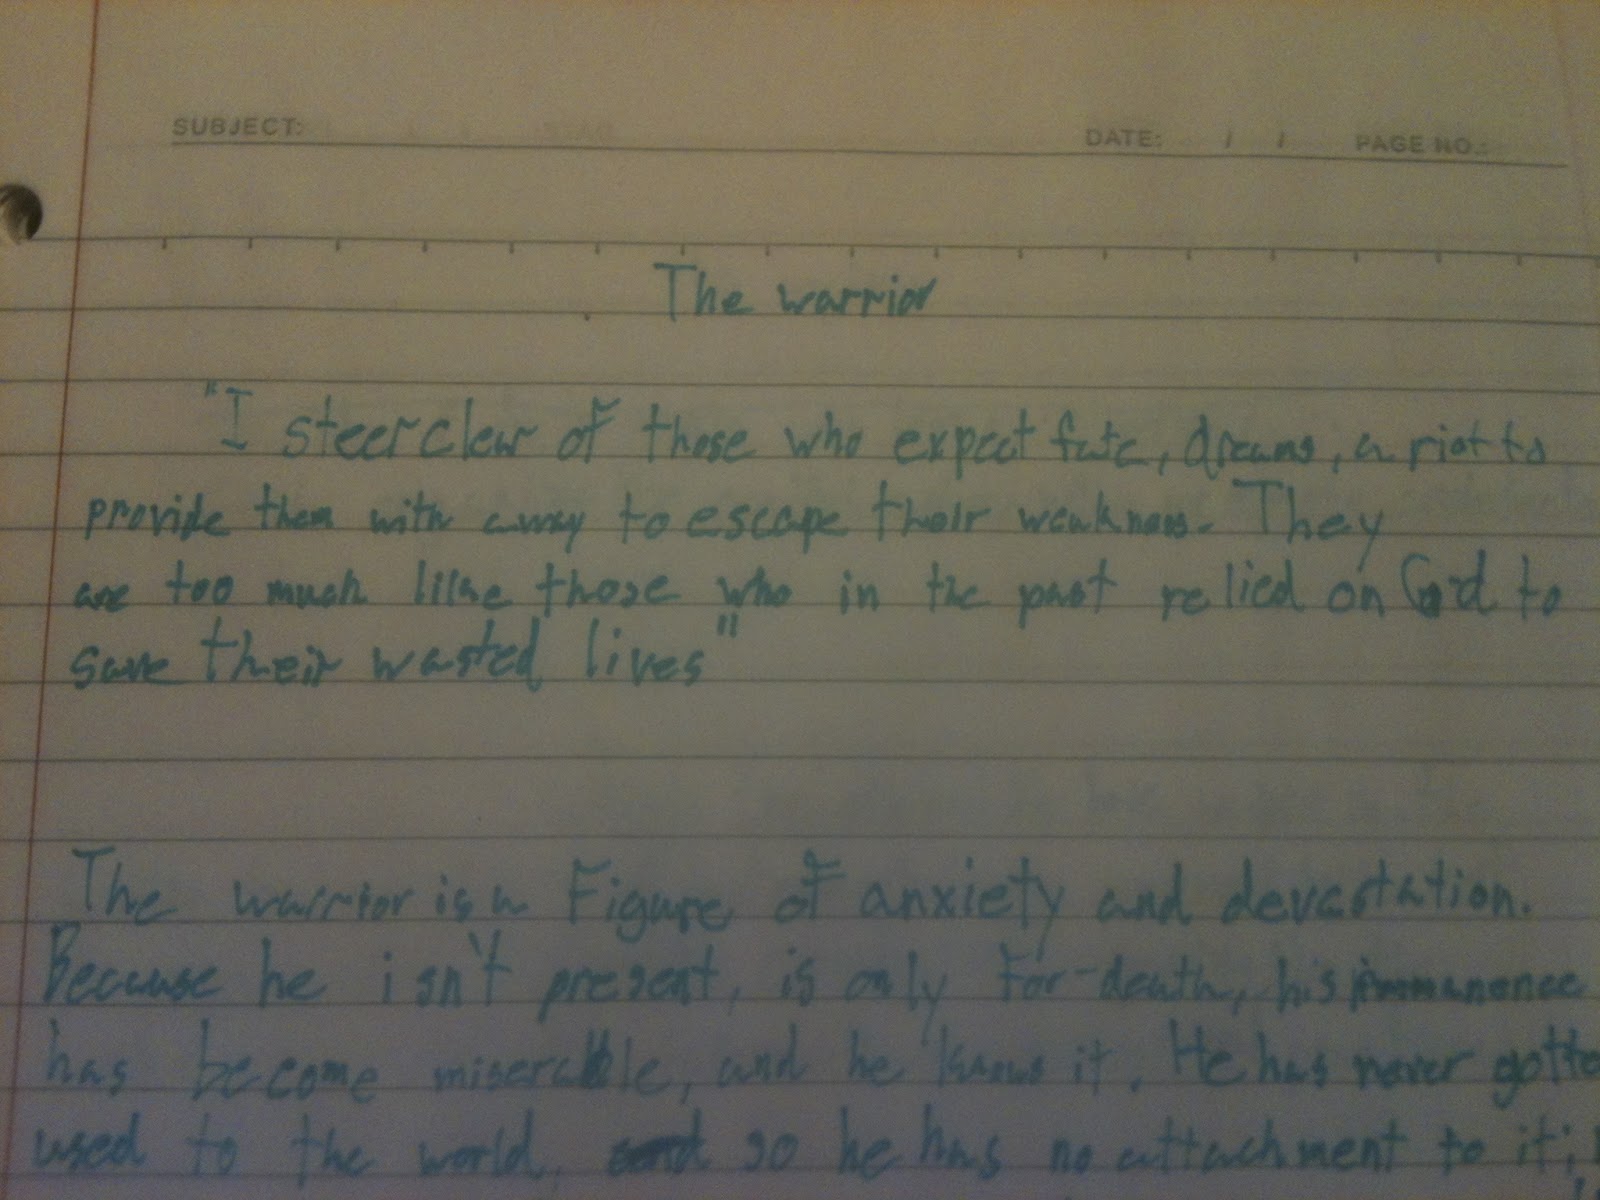 SUBJECT:
DATE: / / PAGE NO.:
The warrior
"I steer clear of those who expect fate, dreams, a riot to
provide them with a way to escape their weakness. They
are too much like those who in the past relied on God to
save their wasted lives"
The warrior is a Figure of anxiety and devastation.
Because he isn't present, is only for-death, his immanence
has become miserable, and he knows it. He has never gotte
used to the world, so he has no attachment to it;